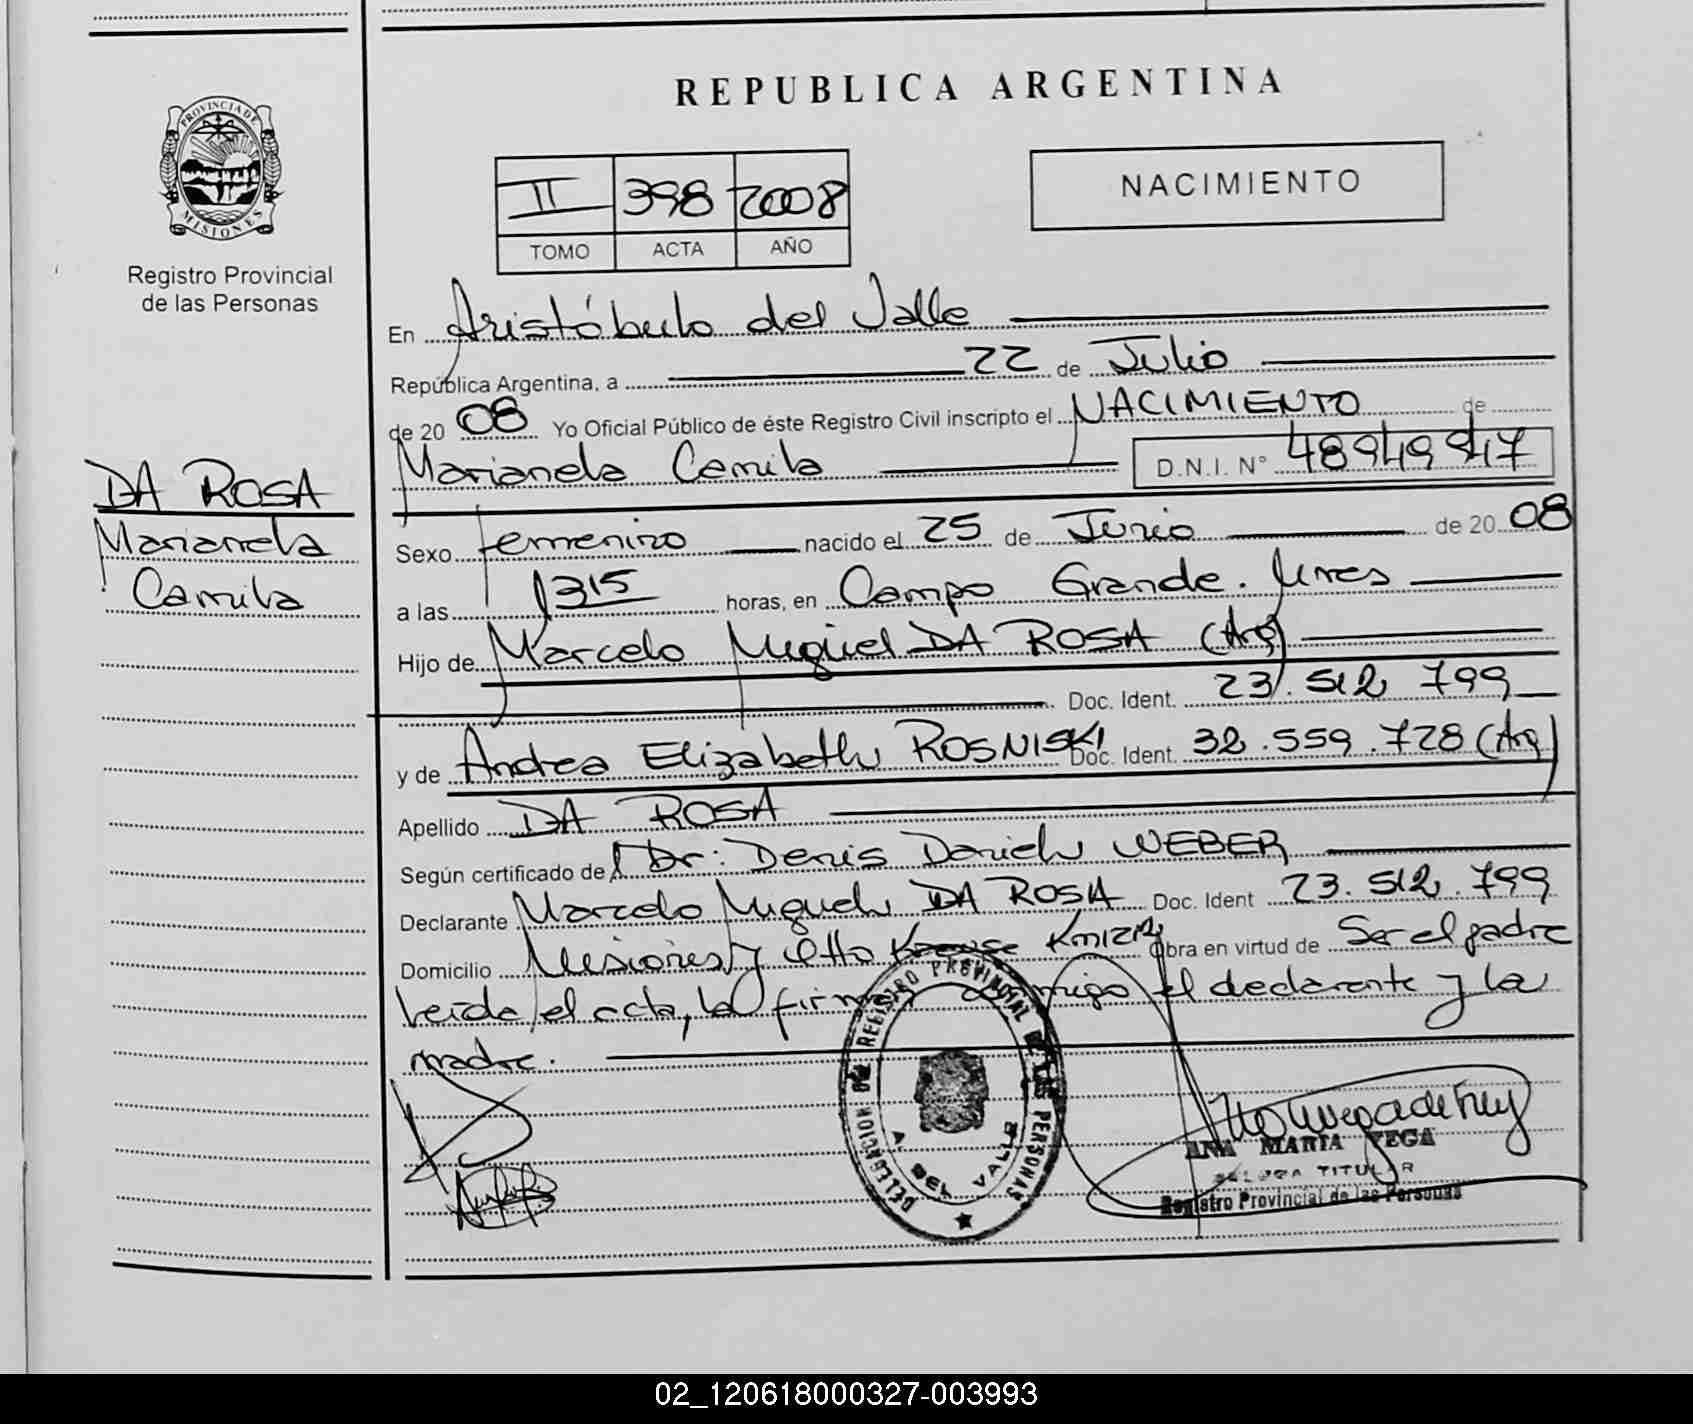 REPUBLICA ARGENTINA
PROVINCIA DE MISIONES
Registro Provincial
de las Personas
II 398 2008
TOMO ACTA AÑO
NACIMIENTO
En Aristóbulo del Valle
República Argentina, a 22 de Julio
de 20 08 Yo Oficial Público de éste Registro Civil inscripto el NACIMIENTO de
Marianela Camila D.N.I. Nº 48949947
DA ROSA
Marianela
Camila
Sexo femenino nacido el 25 de Junio de 20 08
a las 1315 horas, en Campo Grande. Mnes
Hijo de Marcelo Miguel DA ROSA (Arg)
Doc. Ident. 23.512.799
y de Andrea Elizabeth ROSNISKI Doc. Ident. 32.559.728 (Arg)
Apellido DA ROSA
Según certificado de Dr: Denis Daniel WEBER
Declarante Marcelo Miguel DA ROSA Doc. Ident 23.512.799
Domicilio Misiones y Otto Krause Obra en virtud de Ser el padre
Leída el acta, la firman conmigo el declarante y la
madre.
DELEGACION DEL REGISTRO PROVINCIAL DE LAS PERSONAS
A. DEL VALLE
ANA MARIA VEGA
TITULAR
Registro Provincial de las Personas
02_120618000327-003993